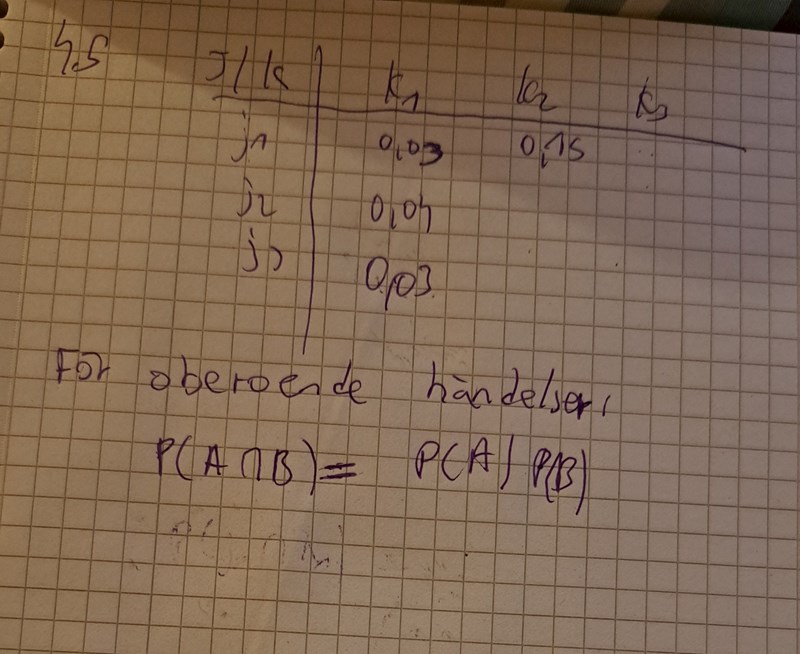 45 J/k k1 k2 k3
j1 0,03 0,15
j2 0,04
j3 0,03
För oberoende händelser,
P(A∩B) = P(A) P(B)